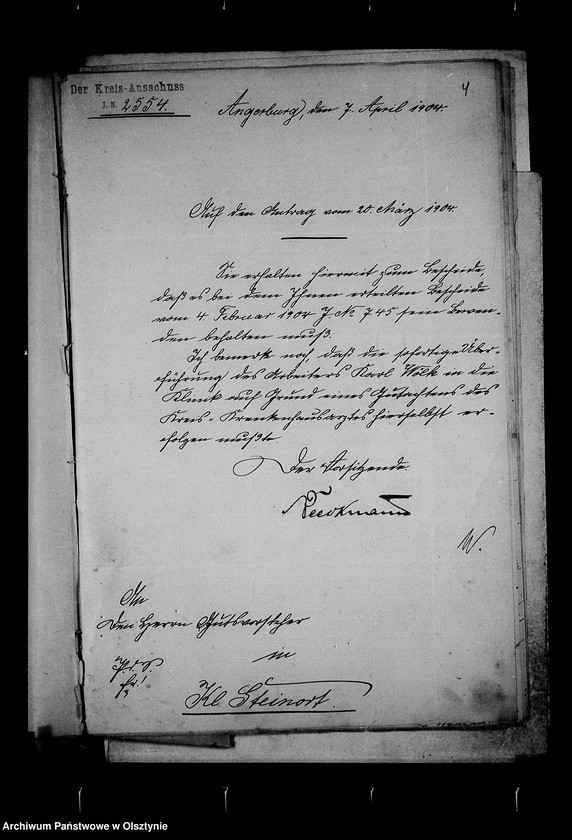 Der Kreis-Ausschuss
J. N. 2554.
4
Angerburg, den 7. April 1904.
Auf den Antrag vom 20. März 1904.
Sie erhalten hiermit zum Bescheide,
daß es bei dem Ihnen erteilten Bescheide
vom 4. Februar 1904 J. No 745 sein Bewen-
den behalten muß.
Ich bemerke noch, daß die sofortige Über-
führung des Arbeiters Karl Wilk in die
Klinik auf Grund eines Gutachtens des
Kreis-Krankenhausarztes hierselbst er-
folgen mußte
Der Vorsitzende.
W.
An
den Herrn Gutsvorsteher
in
Kl. Steinort.
Archiwum Państwowe w Olsztynie